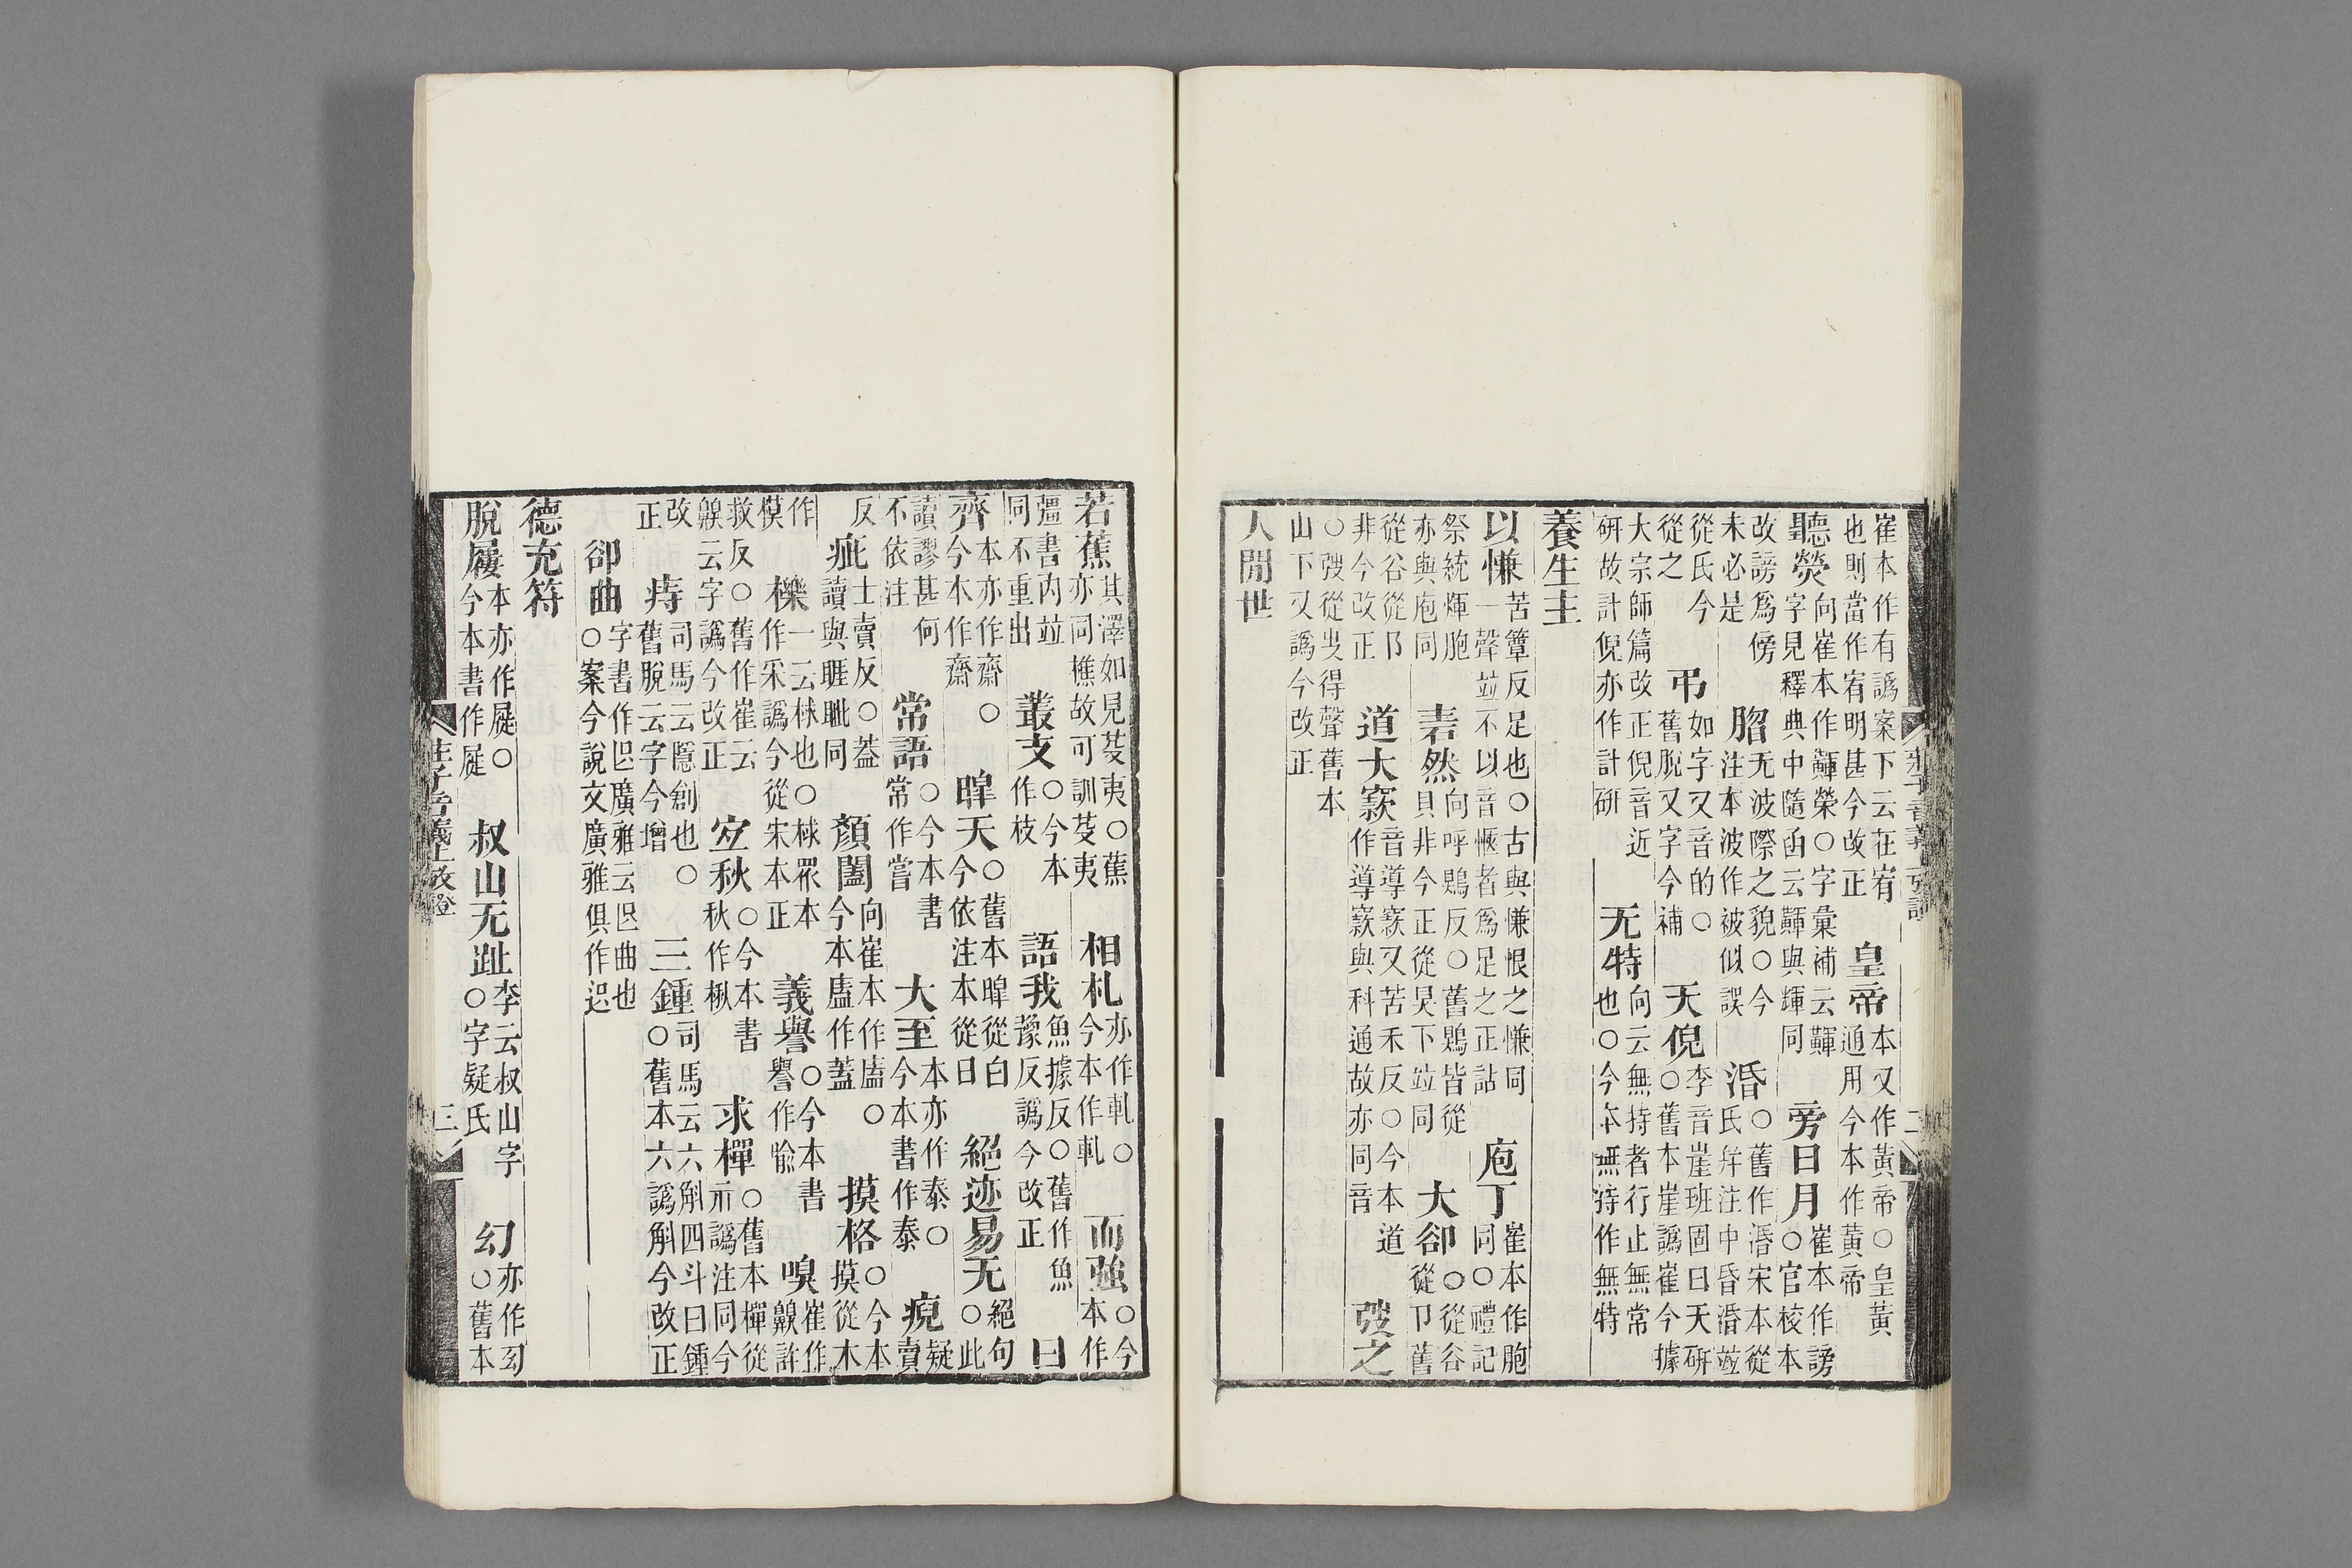 崔本作有譌案下云在宥也則當作宥明甚今改正 皇帝本又作黃帝○皇黃通用今本作黃帝
聽熒向崔本作䡣榮○字彙補云䡣字見釋典中隨函云䡣與輝同 旁日月崔本作謗○官校本
改謗爲傍未必是 䐇无波際之貌○今注本波作被似誤 涽○舊作湣宋本從氏幷注中昏湣竝
從氏今從之 弔如字又音的○舊脫又字今補 天倪李音崖班固曰天研○舊本崖譌崔今據
大宗師篇改正倪音近研故計倪亦作計研 无特向云無持者行止無常也○今本無持作無特
養生主
以慊苦簟反足也○古與慊恨之慊同一聲竝不以音愜者爲足之正詁 庖丁崔本作胞同○禮記
祭統煇胞亦與庖同 砉然向呼鶪反○舊鶪皆從貝非今正從狊下竝同 大卻○從谷從卩舊
從谷從阝非今改正 道大窾音導窾又苦禾反○今本道作導窾與科通故亦同音 弢之
○弢從得聲舊本山下又譌今改正
人閒世
莊子音義上攷證 二
若蕉其澤如見芟夷○蕉亦同樵故可訓芟夷 相札亦作軋○今本作軋 而強○今本作
彊書内竝同不重出 叢支○今本作枝 語我魚據反○舊作魚豫反譌今改正 曰
齊本亦作齋○今本作齋 暤天○舊本暤從白今依注本從日 絕迹易无絕句○此
讀謬甚何不依注 常語○今本書常作嘗 大至本亦作泰○今本書作泰 疑賣
反 疵士賣反○葢讀與睚眦同 顏闔向崔本作廅○今本廅作蓋 摸格○今本摸從木
作模 櫟一云梂也○梂罙本作采譌今從宋本正 義譽○今本書譽作喻 嗅崔作齅許
救反○舊作崔云齅云字譌今改正 宜秋○今本書秋作楸 求樿○舊本樿從示譌注同今
改正 痔司馬云隱創也○舊脫云字今增 三鍾司馬云六斛四斗曰鍾○舊本六譌斛今改正
卻曲字書作廣雅云曲也○案今說文廣雅俱作
德充符
脫屨本亦作屣○今本書作屣 叔山无趾李云叔山字○字疑氏 幻亦作幻○舊本
莊子音義上攷證 三